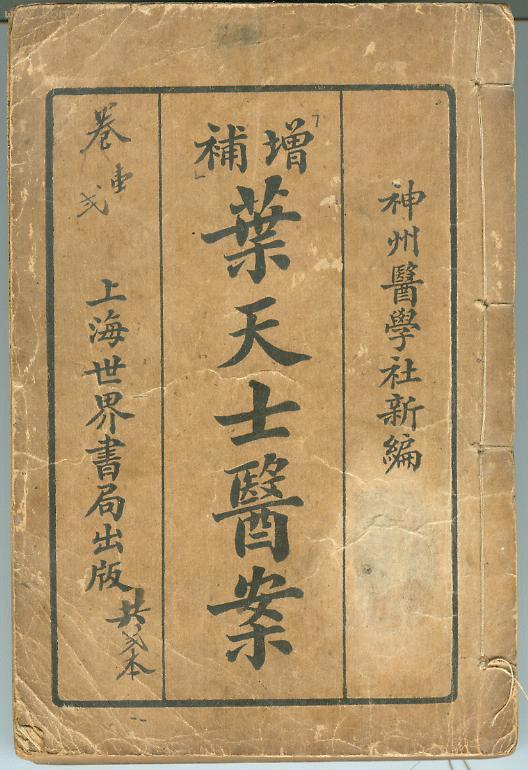 神州醫學社新編
增補
葉天士醫案
上海世界書局出版
卷
弍
共弍本